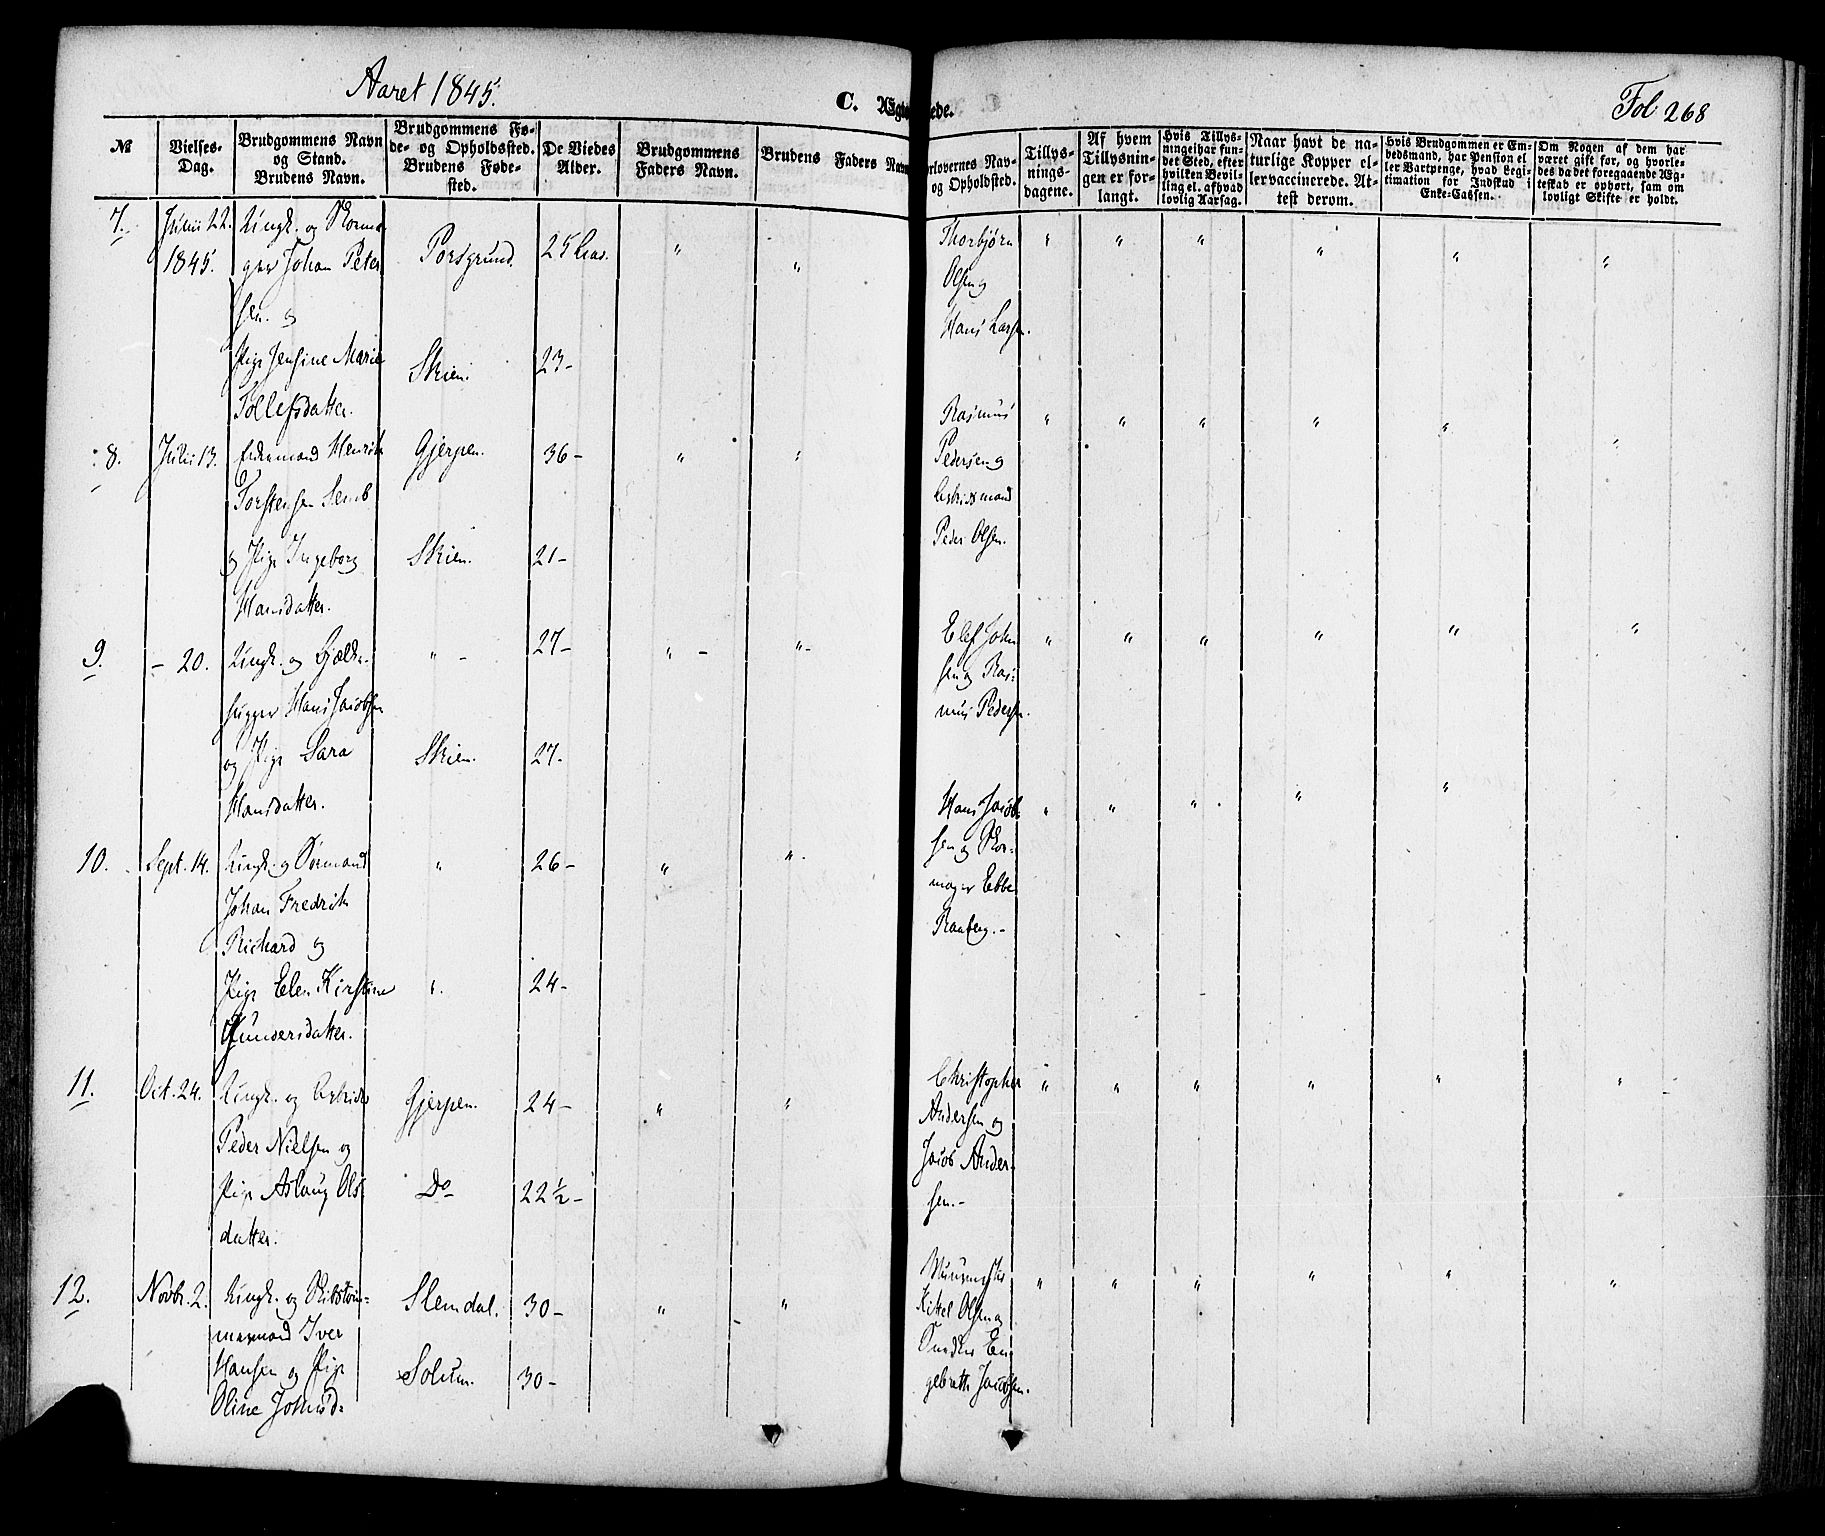 Aaret 1845.
C. Ægte
ede.
Fol. 268
№
Vielses-
Dag.
Brudgommens Navn
og Stand.
Brudens Navn.
Brudgommens Fø-
de- og Opholdssted.
Brudens Føde-
sted.
De Viedes
Alder.
Brudgommens
Faders Navn.
Brudens Faders Navn
orlovernes Nav-
og Opholdsted.
Tillys-
nings-
dagene.
Af hvem
Tillysnin-
gen er for-
langt.
Hvis Tillys-
ningei har fun-
det Sted, efter
hvilken Bevil-
ling el. af hvad
lovlig Aarsag.
Naar havt de na-
turlige Kopper el-
ler vaccinerede. At-
test derom.
Hvis Brudgommen er Em-
bedsmand, har Pension el
ler Vartpenge, hvad Legi-
timation for Indskud i
Enke-Cassen.
Om Nogen af dem har
været gift før, og hvorle-
des da det foregaaende Æg-
teskab er ophørt, sam om
lovligt Skifte er holdt.
7. Junii 22. Ungk. og Skoma-
1845. ger Johan Peter Porsgrund. 25 Aar. " "
sen. og
Pige Jensine Marie Skien. 23-
Tollefsdatter.
Thorbjørn " " " " " "
Olsen og
Hans Larsen.
8. Julii 13. Enkemand Henrik Gjerpen. 36- " "
Torstensen Semb
og Pige Ingeborg Skien. 21-
Hansdatter.
Rasmus " " " " " "
Pedersen og
Arbeidsmand
Peder Olsen.
9. - 20. Ungk. og Bjælke- " - 27- " - "-
hugger Hans Jacobsen
og Pige Sara Skien. 27.
Hansdatter.
Elef John " " " " " "
sen og Ras-
mus Pedersen.
10. Sept. 14. Ungk. og Sømand " 26- " "
Johan Fredrik
Richard og
Pige Elen Kirstine " 24-
Gundersdatter.
Hans Jacob- " " " " "
sen og Sko-
mager Ebbe
Raaberg.-
11. Oct. 24. Ungk. og Arbeids Gjerpen. 24- " "
Peder Nielsen og
Pige Aslaug Ols Do 22½-
datter.
Christopher " " " " " "
Andersen og
Jacob Ander-
sen.-
12. Novbr. 2. Ungk. og Skibstøm- Slemdal. 30- " "
mermand Iver
Hansen og Pige Solum. 30-
Oline Johnsd-
Muurmester " " " " " "
Kittel Olsen og
Snedker En
gebreth Jacobsen.